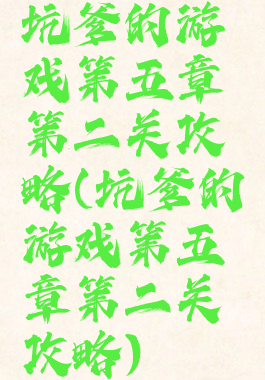 坑爹的游
戏第五章
第二关攻
略(坑爹的
游戏第五
章第二关
攻略)